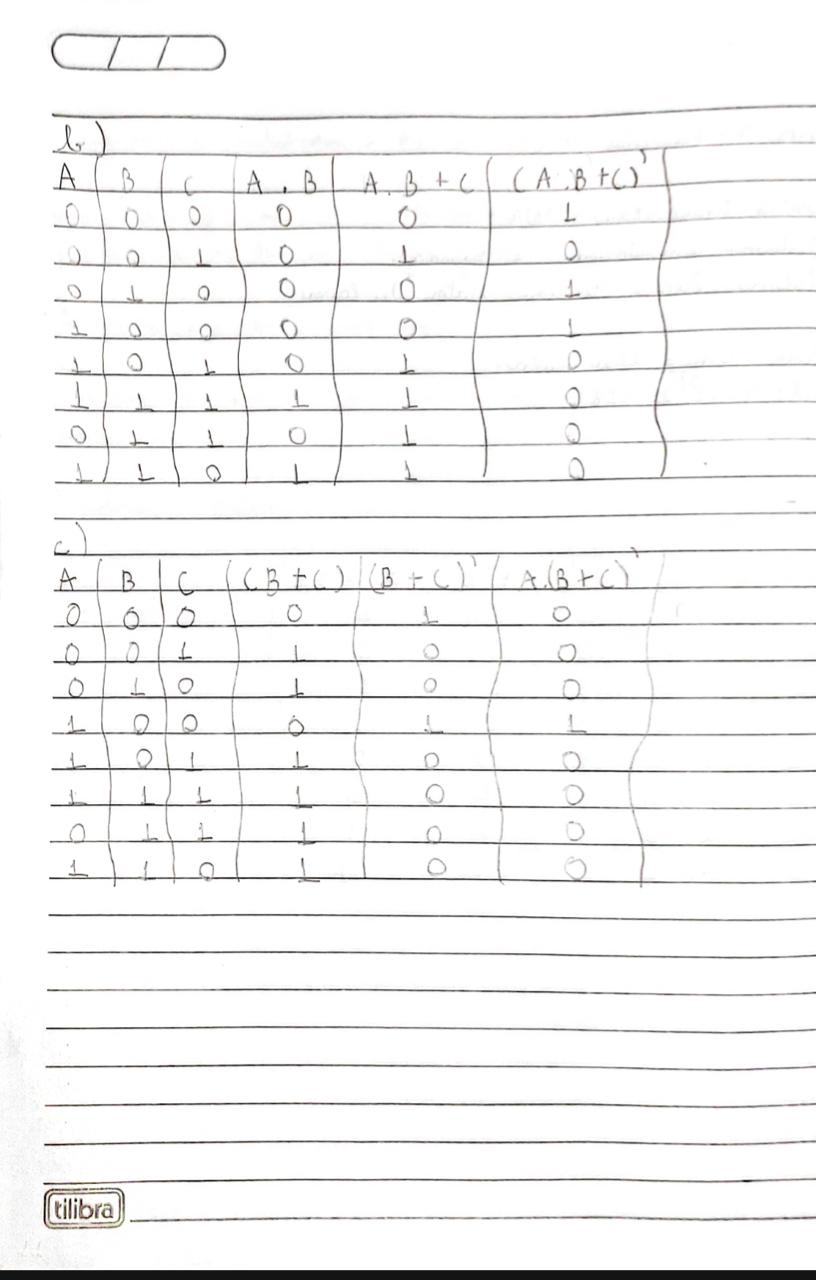 b)
A B C A . B A . B + C (A . B + C)'
0 0 0 0 0 1
0 0 1 0 1 0
0 1 0 0 0 1
1 0 0 0 0 1
1 0 1 0 1 0
1 1 1 1 1 0
0 1 1 0 1 0
1 1 0 1 1 0
c)
A B C (B + C) (B + C)' A.(B + C)'
0 0 0 0 1 0
0 0 1 1 0 0
0 1 0 1 0 0
1 0 0 0 1 1
1 0 1 1 0 0
1 1 1 1 0 0
0 1 1 1 0 0
1 1 0 1 0 0
tilibra